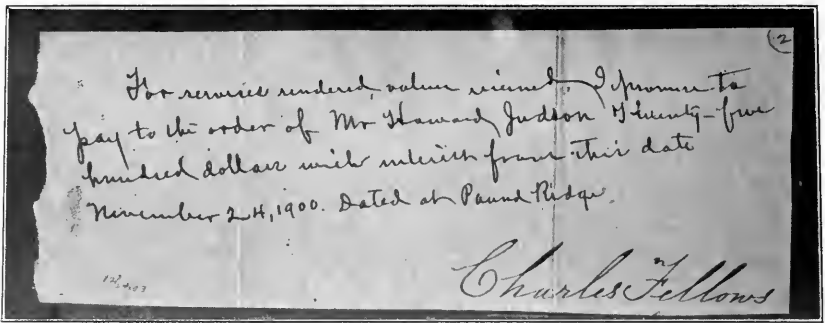 2
For services rendered, value received, I promise to
pay to the order of Mr Howard Judson Twenty-five
hundred dollars with interest from this date
November 24, 1900. Dated at Pound Ridge.
Charles Fellows